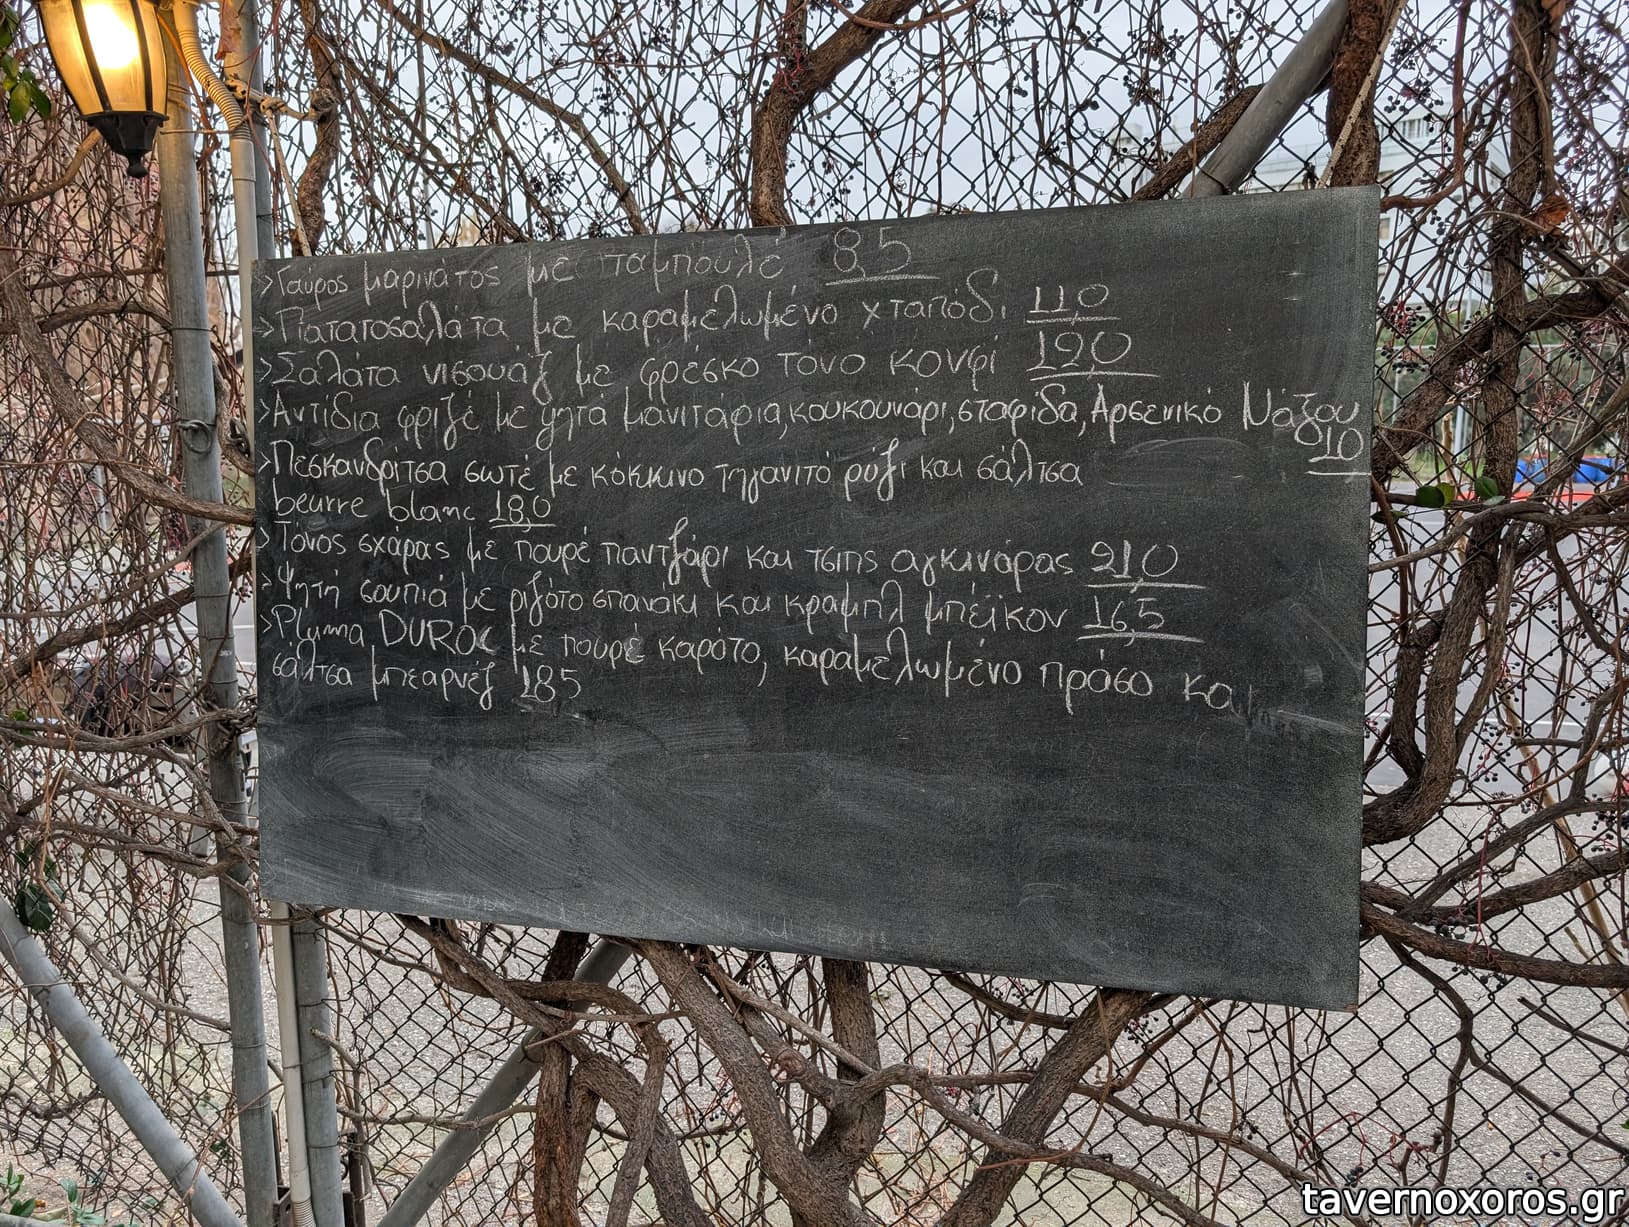 >Γαύρος μαρινάτος με ταμπουλέ 8,5
>Πατατοσαλάτα με καραμελωμένο χταπόδι 11,0
>Σαλάτα νισουάζ με φρέσκο τόνο κονφί 12,0
>Αντίδια φριζέ με ψητά μανιτάρια, κουκουνάρι, σταφίδα, Αρσενικό Νάξου
10
>Πεσκανδρίτσα σωτέ με κόκκινο τηγανιτό ρύζι και σάλτσα
beurre blanc 18,0
>Τόνος σχάρας με πουρέ παντζάρι και τσιπς αγκινάρας 21,0
>Ψητή σουπιά με ριζότο σπανάκι και κραμπλ μπέϊκον 16,5
>Pluma DUROC με πουρέ καρότο, καραμελωμένο πράσο και
σάλτσα μπεαρνέζ 18,5
tavernoxoros.gr